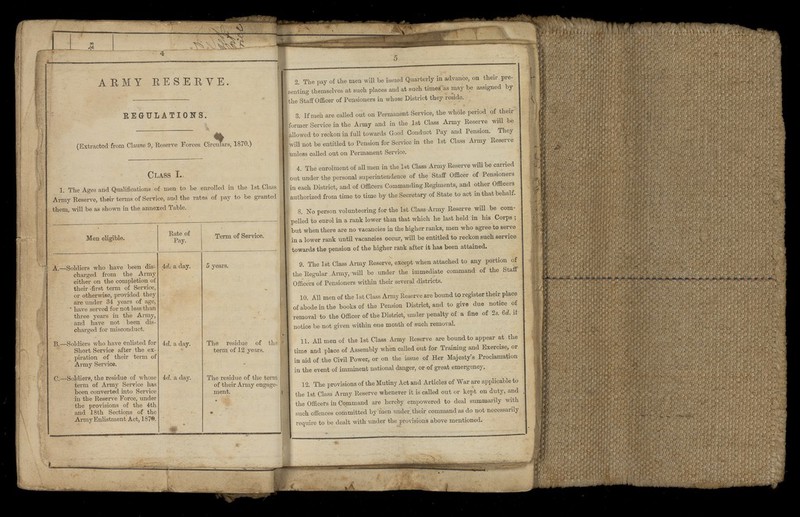 4
ARMY RESERVE.
REGULATIONS.
(Extracted from Clause 9, Reserve Forces Circulars, 1870.)
CLASS I.
1. The Ages and Qualifications of men to be enrolled in the 1st Class
Army Reserve, their terms of Service, and the rates of pay to be granted
them, will be as shown in the annexed Table.
Men eligible.
Rate of
Pay.
Term of Service.
A.—Soldiers who have been dis-
charged from the Army
either on the completion of
their first term of Service,
or otherwise, provided they
are under 34 years of age,
have served for not less than
three years in the Army,
and have not been dis-
charged for misconduct.
4d. a day.
5 years.
B.—Soldiers who have enlisted for
Short Service after the ex-
piration of their term of
Army Service.
4d. a day.
The residue of the
term of 12 years.
C.—Soldiers, the residue of whose
term of Army Service has
been converted into Service
in the Reserve Force, under
the provisions of the 4th
and 18th Sections of the
Army Enlistment Act, 1870.
4d. a day.
The residue of the term
of their Army engage-
ment.
5
2. The pay of the men will be issued Quarterly in advance, on their pre-
senting themselves at such places and at such times as may be assigned by
the Staff Officer of Pensioners in whose District they reside.
3. If men are called out on Permanent Service, the whole period of their
former Service in the Army and in the 1st Class Army Reserve will be
allowed to reckon in full towards Good Conduct Pay and Pension. They
will not be entitled to Pension for Service in the 1st Class Army Reserve
unless called out on Permanent Service.
4. The enrolment of all men in the 1st Class Army Reserve will be carried
out under the personal superintendence of the Staff Officer of Pensioners
in each District, and of Officers Commanding Regiments, and other Officers
authorized from time to time by the Secretary of State to act in that behalf.
8. No person volunteering for the 1st Class Army Reserve will be com-
pelled to enrol in a rank lower than that which he last held in his Corps;
but when there are no vacancies in the higher ranks, men who agree to serve
in a lower rank until vacancies occur, will be entitled to reckon such service
towards the pension of the higher rank after it has been attained.
9. The 1st Class Army Reserve, except when attached to any portion of
the Regular Army, will be under the immediate command of the Staff
Officers of Pensioners within their several districts.
10. All men of the 1st Class Army Reserve are bound to register their place
of abode in the books of the Pension District, and to give due notice of
removal to the Officer of the District, under penalty of a fine of 2s. 6d. if
notice be not given within one month of such removal.
11. All men of the 1st Class Army Reserve are bound to appear at the
time and place of Assembly when called out for Training and Exercise, or
in aid of the Civil Power, or on the issue of Her Majesty's Proclamation
in the event of imminent national danger, or of great emergency.
12. The provisions of the Mutiny Act and Articles of War are applicable to
the 1st Class Army Reserve whenever it is called out or kept on duty, and
the Officers in Command are hereby empowered to deal summarily with
such offences committed by men under their command as do not necessarily
require to be dealt with under the provisions above mentioned.